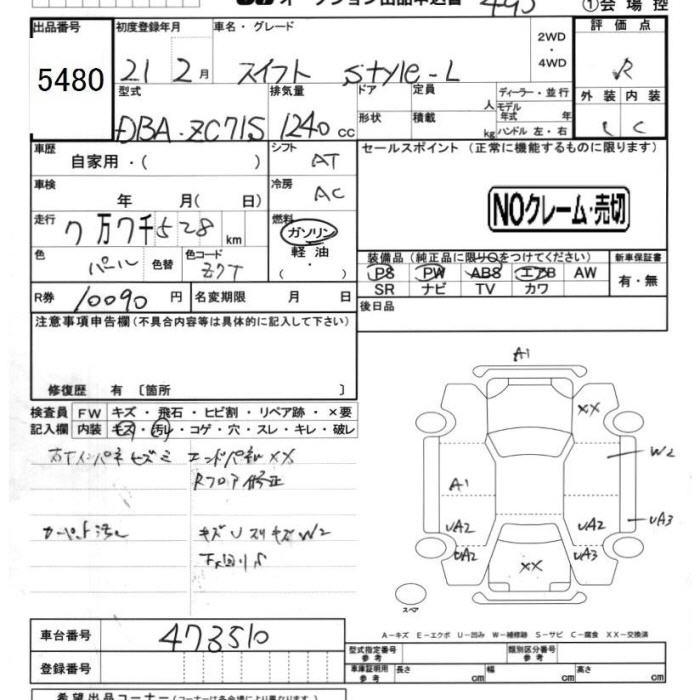 オークション出品申込書 495 ①会場控
出品番号 初度登録年月 車名・グレード 2WD・4WD 評価点
5480 21 2月 スイフト Style-L R
型式 排気量 ドア 定員 人 ディーラー・並行 外装 内装
DBA-ZC71S 1240 cc 形状 積載 kg モデル年式 年 ハンドル 左・右 C
車歴 自家用・( ) シフト AT セールスポイント (正常に機能するものに限ります)
車検 年 月( 日) 冷房 AC
NOクレーム・売切
走行 7万7千528 km 燃料 ガソリン・軽油・
色 パール 色替 色コード Z7T
装備品(純正品に限り○をつけてください) 新車保証書
PS PW ABS エアB AW 有・無
SR ナビ TV カワ
R券 10090 円 名変期限 月 日
後日品
注意事項申告欄(不具合内容等は具体的に記入して下さい)
修復歴 有 〔箇所 〕
検査員 FW キズ・飛石・ヒビ割・リペア跡・×要
記入欄 内装 キズ・汚レ・コゲ・穴・スレ・キレ・破レ
エンドパネル XX
Rフロア修正
キズ U スリキズ W2
A1
XX
W2
A1
UA2 UA2 UA3
UA2 XX UA3
スペア
A-キズ E-エクボ U-凹み W-補修跡 S-サビ C-腐食 XX-交換済
車台番号 473510
型式指定番号 参考 類別区分番号 参考
登録番号 車庫証明用 参考 長さ cm 幅 cm 高さ cm
希望出品コーナー(コーナーは各会場により異なります)